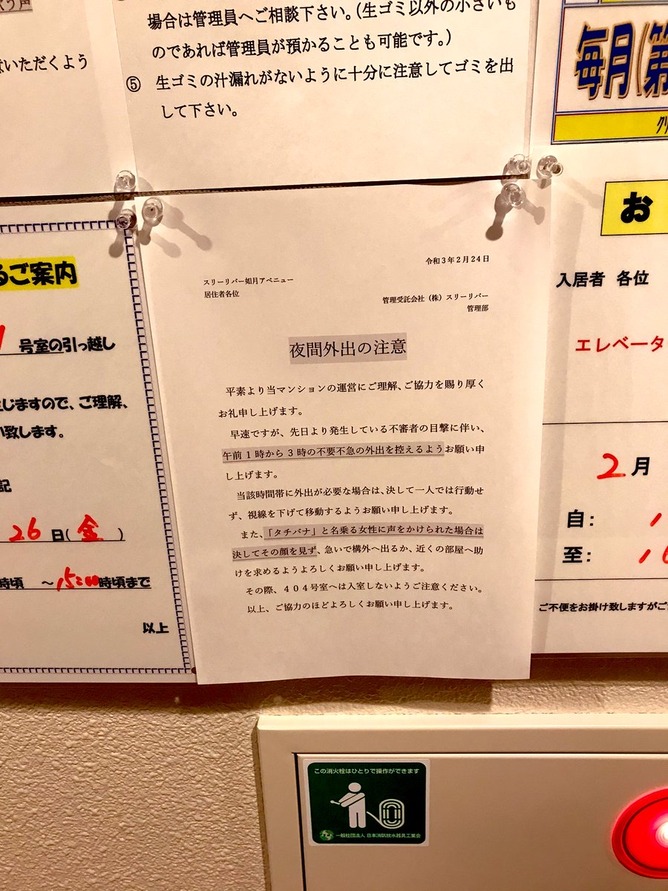 場合は管理員へご相談下さい。(生ゴミ以外の小さいも
のであれば管理員が預かることも可能です。)
⑤ 生ゴミの汁漏れがないように十分に注意してゴミを出
して下さい。
いただくよう
毎月(第
るご案内
号室の引っ越し
じますので、ご理解、
い致します。
記
26日(金)
時頃 ~15:00時頃まで
以上
令和3年2月24日
スリーリバー如月アベニュー
居住者各位
管理受託会社(株)スリーリバー
管理部
夜間外出の注意
平素より当マンションの運営にご理解、ご協力を賜り厚く
お礼申し上げます。
早速ですが、先日より発生している不審者の目撃に伴い、
午前1時から3時の不要不急の外出を控えるようお願い申
し上げます。
当該時間帯に外出が必要な場合は、決して一人では行動せ
ず、視線を下げて移動するようお願い申し上げます。
また、「タチバナ」と名乗る女性に声をかけられた場合は
決してその顔を見ず、急いで構外へ出るか、近くの部屋へ助
けを求めるようよろしくお願い申し上げます。
その際、404号室へは入室しないようご注意ください。
以上、ご協力のほどよろしくお願い申し上げます。
お
入居者 各位
エレベータ
2月
自:
至:
ご不便をお掛け致しますがご
この消火栓はひとりで操作ができます
一般社団法人 日本消防放水器具工業会